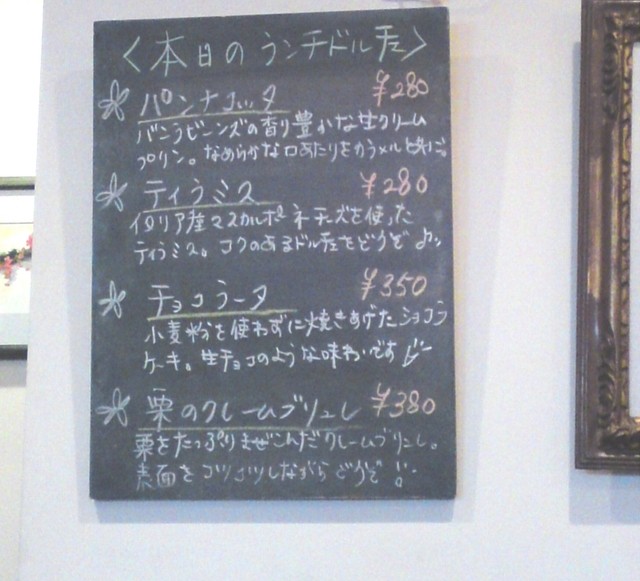 〈本日のランチドルチェ〉
パンナコッタ ¥280
バニラビーンズの香り豊かな生クリーム
プリン。なめらかな口あたりをカラメルと共に。
ティラミス ¥280
イタリア産マスカルポーネチーズを使った
ティラミス。コクのあるドルチェをどうぞ♪
チョコラータ ¥350
小麦粉を使わずに焼きあげたショコラ
ケーキ。生チョコのような味わいです
栗のクレームブリュレ ¥380
栗をたっぷりまぜこんだクレームブリュレ。
表面をコツコツしながらどうぞ